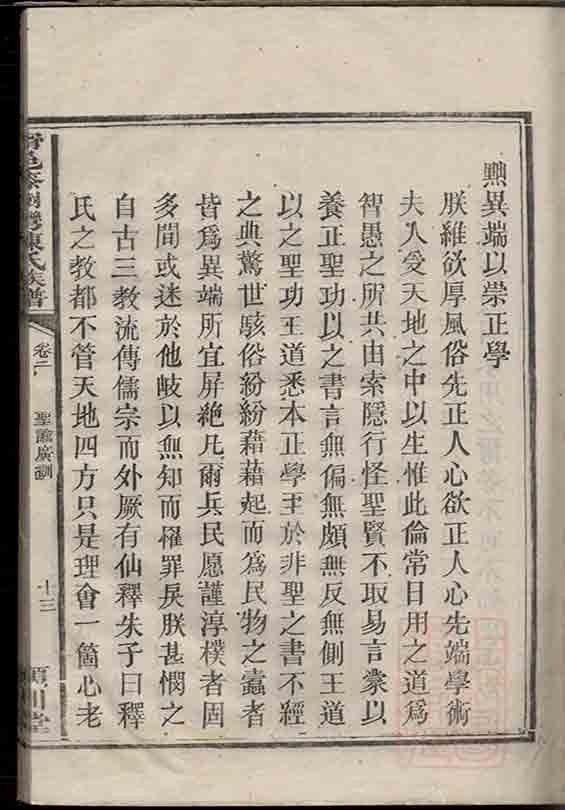 黜異端以崇正學
朕維欲厚風俗先正人心欲正人心先端學術
夫人受天地之中以生惟此倫常日用之道為
智愚之所共由索隱行怪聖賢不取易言蒙以
養正聖功以之書言無偏無頗無反無側王道
以之聖功王道悉本正學至於非聖之書不經
之典驚世駭俗紛紛藉藉起而為民物之蠹者
皆爲異端所宜屏絕凡爾兵民愿謹淳樸者固
多間或迷於他岐以無知而罹罪戾朕甚憫之
自古三教流傳儒宗而外厥有仙釋朱子曰釋
氏之教都不管天地四方只是理會一箇心老
陳氏族譜
卷二
聖諭廣訓
十三
川堂